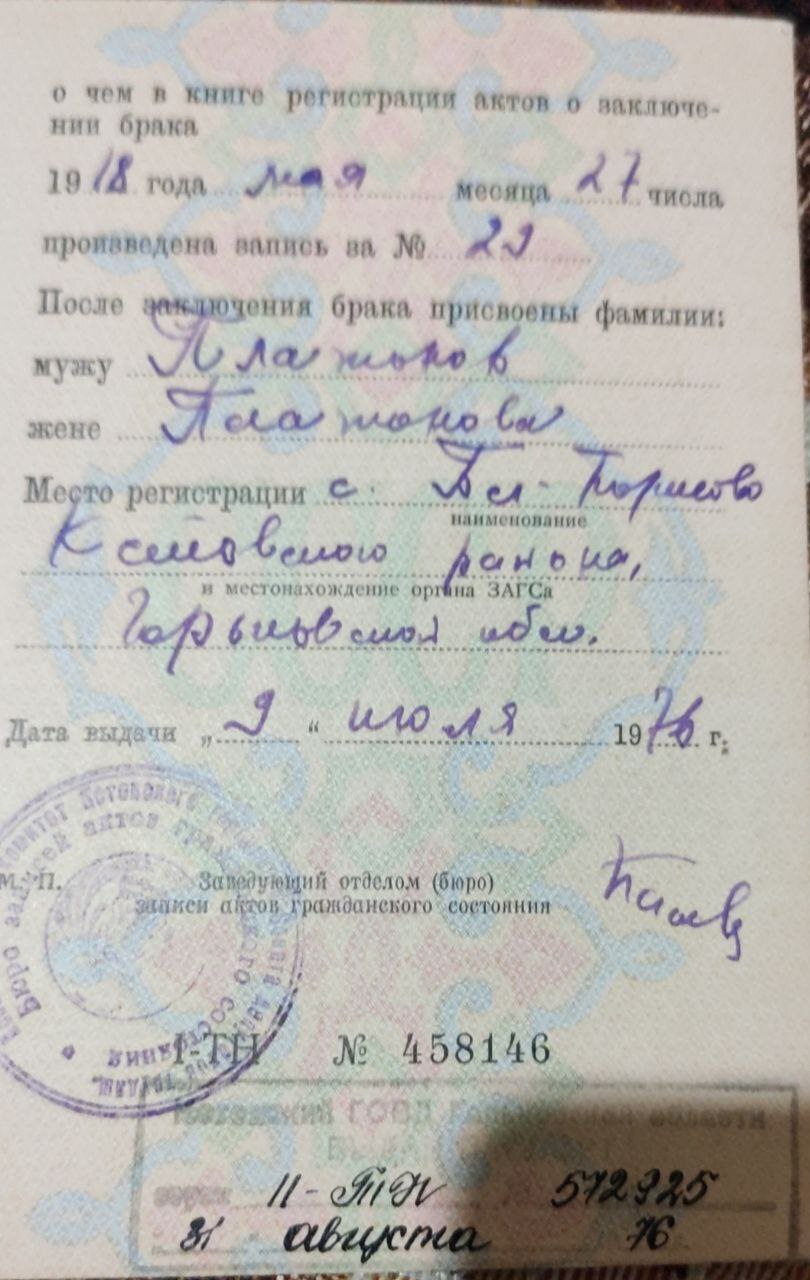 о чем в книге регистрации актов о заключе-
нии брака
1918 года мая месяца 27 числа
произведена запись за № 29
После заключения брака присвоены фамилии:
мужу Платонов
жене Платонова
Место регистрации с. Борисово
наименование
Кстовского района,
и местонахождение органа ЗАГСа
Горьковской обл.
Дата выдачи „ 9 “ июля 1976 г.
М. П. Заведующий отделом (бюро)
записи актов гражданского состояния
I-ТН № 458146
Кстовский ГОВД Горьковской области
серии II-ТН 572925
31 августа 76